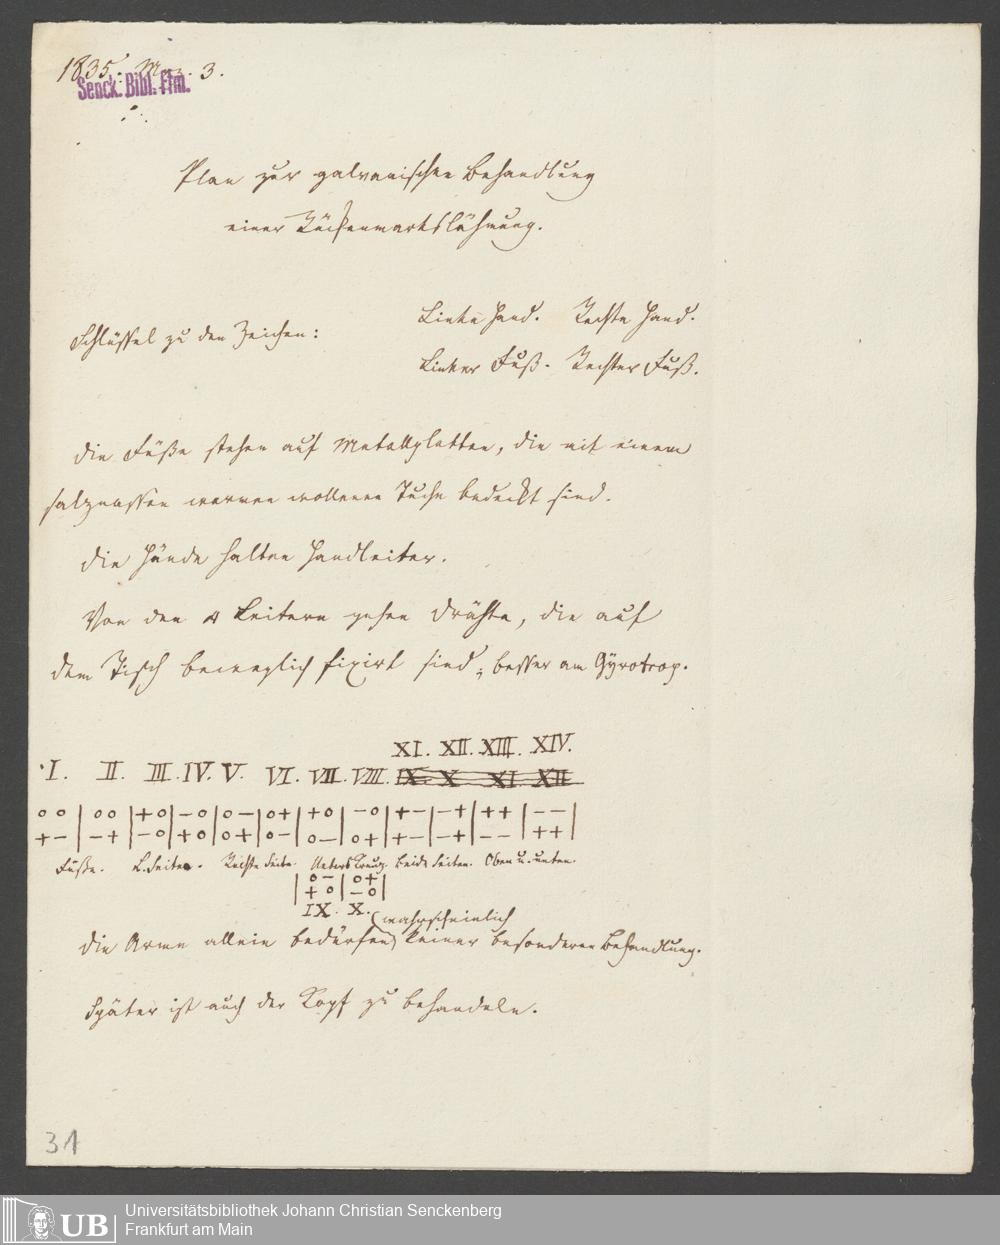 1835. Maz. 3.
Senck. Bibl. Ffm.
Plan zur galvanischen Behandlung
einer Rückenmarkslähmung.
Linke Hand. Rechte Hand.
Schlüssel zu den Zeichen:
Linker Fuß. Rechter Fuß.
Die Füße stehen auf Metallplatten, die mit einem
salznassen warmen wollenen Tuche bedeckt sind.
Die Hände halten Handleiter.
Von den 4 Leitern gehen Drähte, die auf
dem Tisch beweglich fixirt sind, besser am Gyrotrop.
XI. XII. XIII. XIV.
I. II. III. IV. V. VI. VII. VIII. IX X XI XII
o o | o o | + o | - o | o - | o + | + o | - o | + - | - + | + + | - - |
+ - | - + | - o | + o | o + | o - | o - | o + | + - | - + | - - | + + |
Füße. L. Seite. Rechte Seite. Uebers Kreuz. Beide Seiten. Oben u. unten.
| o - | o + |
| + o | - o |
IX. X.
(wahrscheinlich
Die Arme allein bedürfen) keiner besonderen Behandlung.
Später ist auch der Kopf zu behandeln.
31
UB
Universitätsbibliothek Johann Christian Senckenberg
Frankfurt am Main